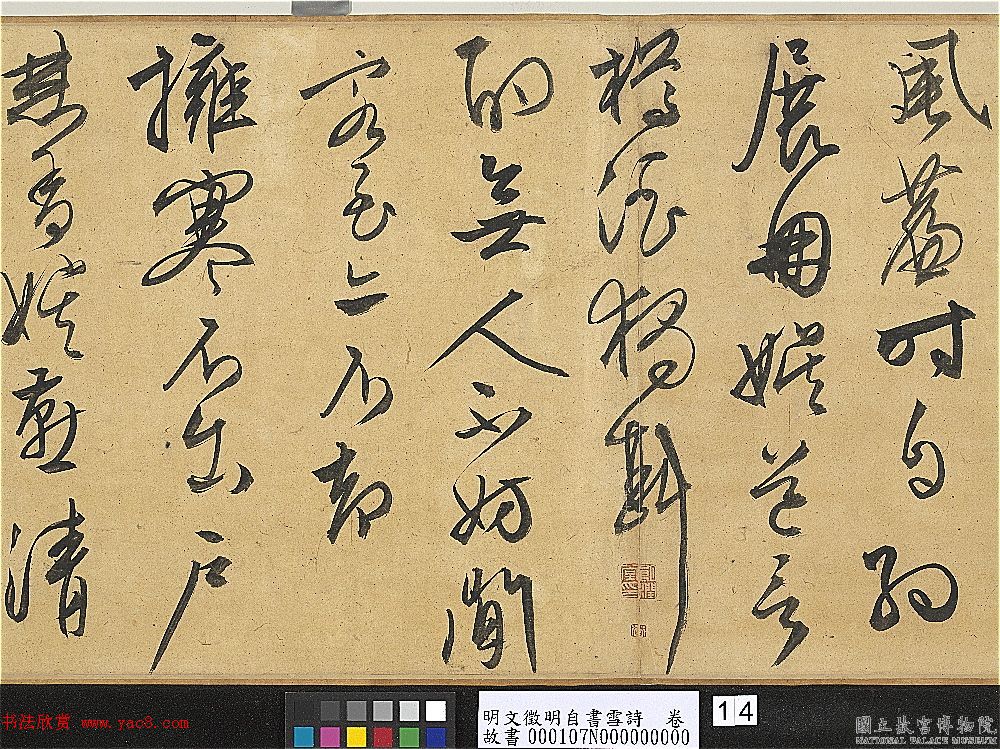 風簷時自飛
展冊娛道言
樽酒獨斟
酌無人不妨閒
客至亦不都
擁寒不出戶
焚香娛燕清
书法欣赏 www.yac8.com
明文徵明自書雪詩 卷
故書 000107N000000000
14
國立故宮博物院
NATIONAL PALACE MUSEUM